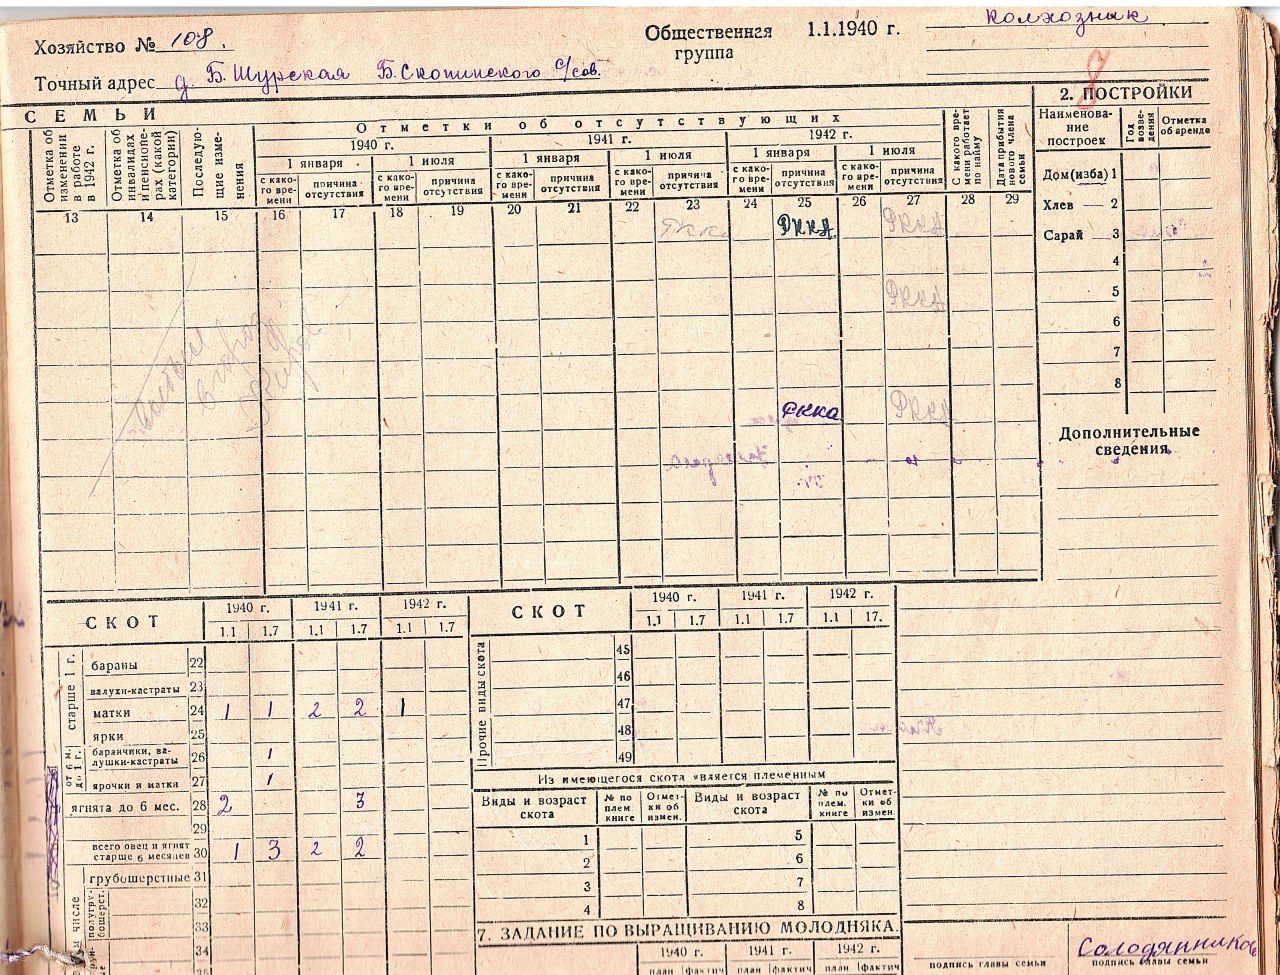 Хозяйство № 108.
Общественная группа 1.1.1940 г. колхозник
Точный адрес д. Б. Шурская Б. Скопинского с/сов.
8
СЕМЬИ
Отметка об изменении в работе в 1942 г.
Отметка об инвалидах и пенсионерах (какой категории)
Последующие изменения
Отметки об отсутствующих
1940 г. 1941 г. 1942 г.
1 января 1 июля 1 января 1 июля 1 января 1 июля
с какого времени причина отсутствия с какого времени причина отсутствия с какого времени причина отсутствия с какого времени причина отсутствия с какого времени причина отсутствия с какого времени причина отсутствия
С какого времени работает по найму
Дата прибытия нового члена семьи
13 14 15 16 17 18 19 20 21 22 23 24 25 26 27 28 29
РККА РККА РККА
РККА
РККА РККА
выбыл
в город
Киров
2. ПОСТРОЙКИ
Наименование построек
Год возведения
Отметка об аренде
Дом (изба) 1
Хлев — 2
Сарай — 3
4
5
6
7
8
Дополнительные сведения
СКОТ
1940 г. 1941 г. 1942 г.
1.1 1.7 1.1 1.7 1.1 1.7
старше 1 г.
бараны 22
валухи-кастраты 23
матки 24 1 1 2 2 1
ярки 25
от 6 м. до 1 г.
баранчики, валушки-кастраты 26 1
ярочки и матки 27 1
ягнята до 6 мес. 28 2 3
29
всего овец и ягнят старше 6 месяцев 30 1 3 2 2
числе
грубошерстные 31
полугрубошерст.
32
33
34
СКОТ
1940 г. 1941 г. 1942 г.
1.1 1.7 1.1 1.7 1.1 17.
Прочие виды скота
45
46
47
48
49
Из имеющегося скота является племенным
Виды и возраст скота № по плем. книге Отметки об измен. Виды и возраст скота № по плем. книге Отметки об измен.
1 5
2 6
3 7
4 8
7. ЗАДАНИЕ ПО ВЫРАЩИВАНИЮ МОЛОДНЯКА.
1940 г. 1941 г. 1942 г.
план фактич план фактич план фактич
Солодянников
подпись главы семьи подпись главы семьи